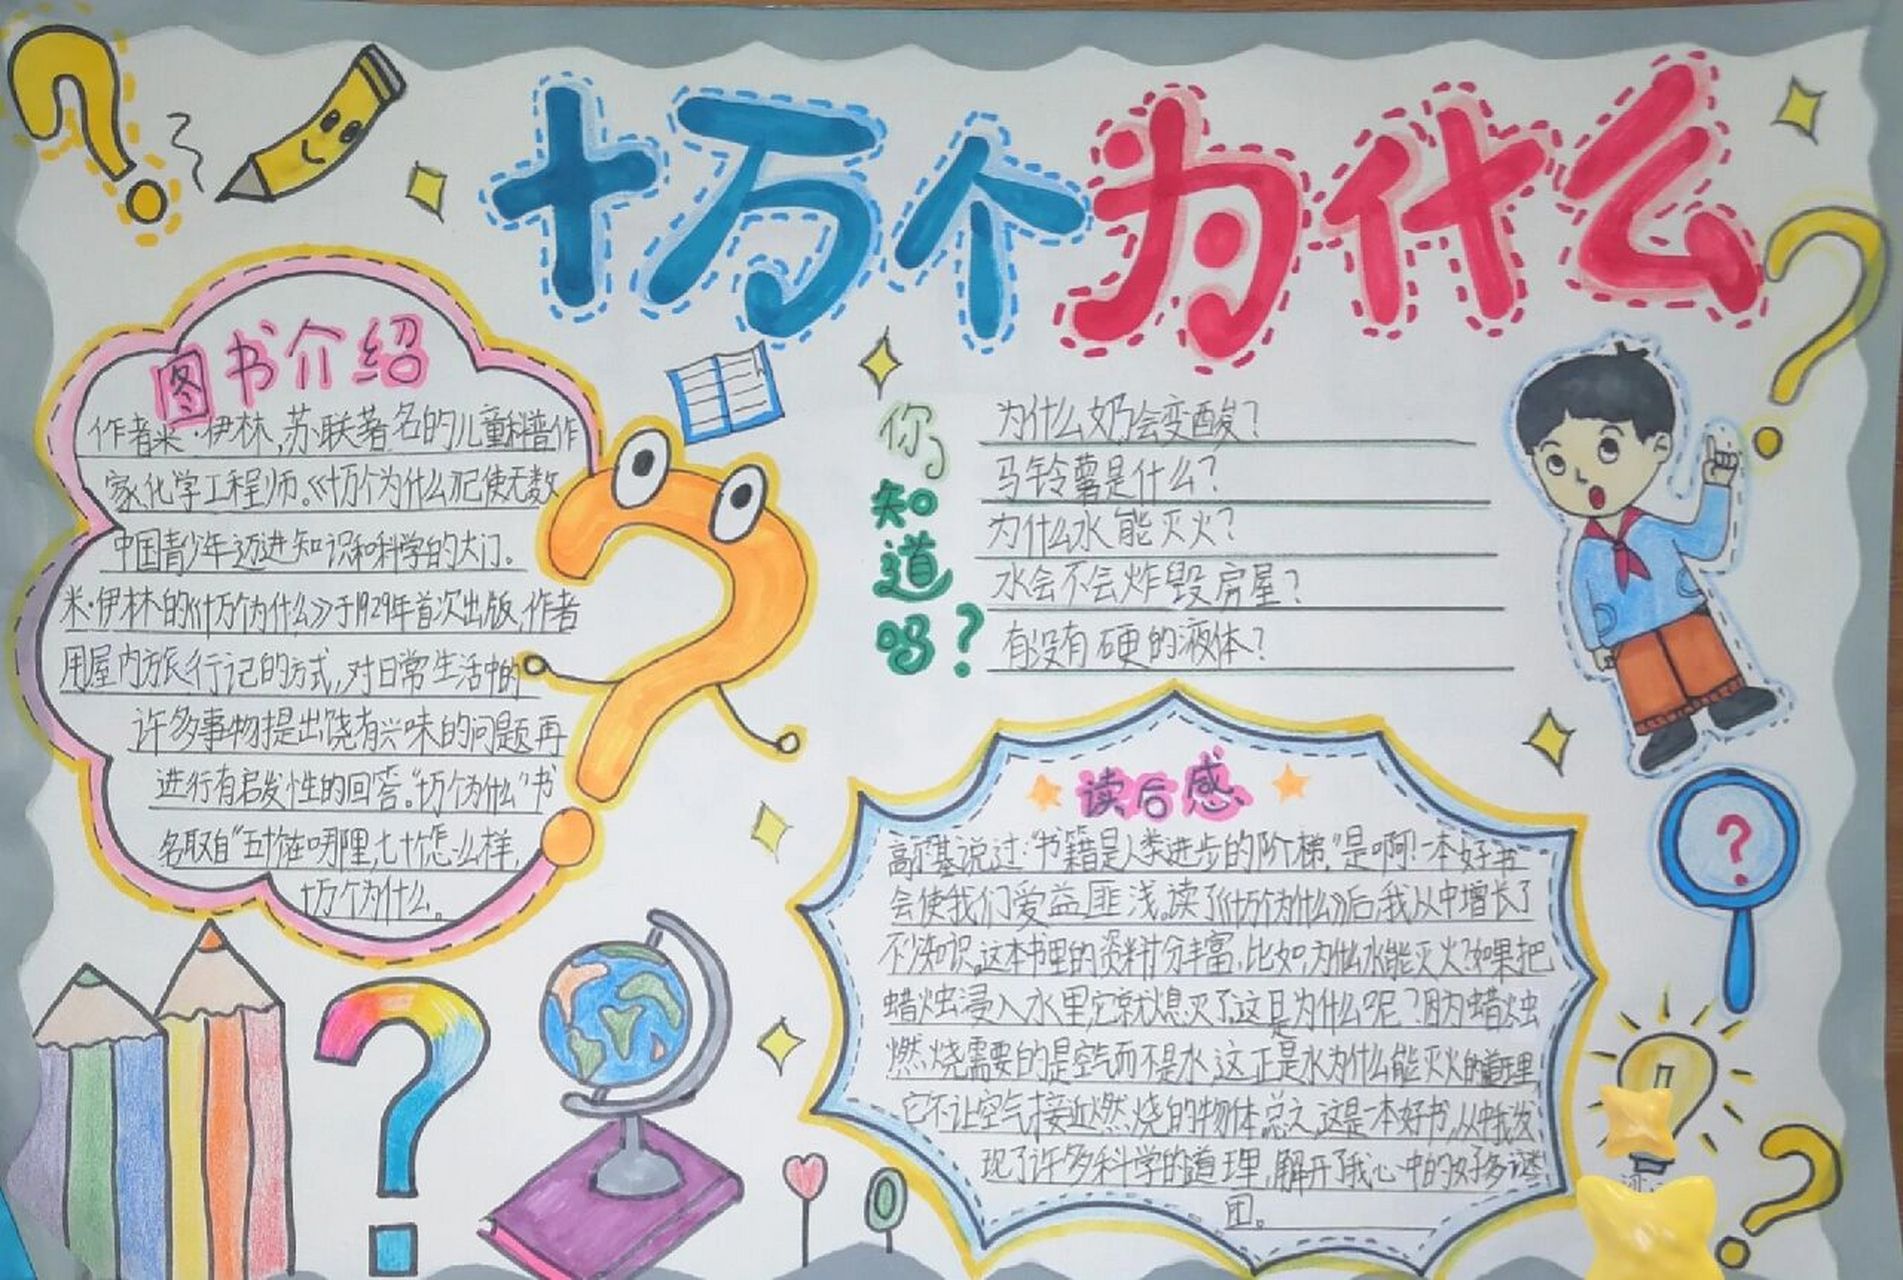 十万个为什么
图书介绍
作者米·伊林,苏联著名的儿童科普作
家,化学工程师。《十万个为什么》使无数
中国青少年迈进知识和科学的大门。
米·伊林的《十万个为什么》于1929年首次出版,作者
用屋内旅行记的方式,对日常生活中的
许多事物提出饶有兴味的问题再
进行有启发性的回答。“十万个为什么”书
名取自“五千个在哪里,七千个怎么样,
十万个为什么。
你知道吗?
为什么奶会变酸?
马铃薯是什么?
为什么水能灭火?
水会不会炸毁房屋?
有没有硬的液体?
读后感
高尔基说过:“书籍是人类进步的阶梯,”是啊!一本好书
会使我们受益匪浅。读了《十万个为什么》后,我从中增长了
不少知识,这本书里的资料十分丰富,比如,为什么水能灭火?如果把
蜡烛浸入水里,它就熄灭了,这是为什么呢?因为蜡烛
燃烧需要的是空气而不是水,这正是水为什么能灭火的道理,
它不让空气接近燃烧的物体,总之,这是一本好书,从中我发
现了许多科学的道理,解开了我心中的好多谜
团。
?